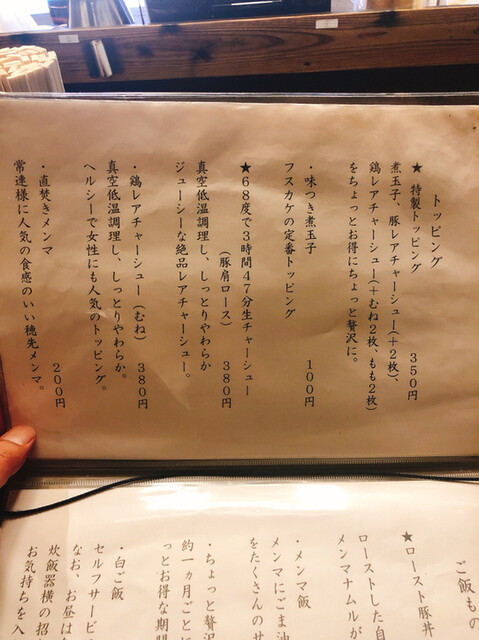 トッピング
★ 特製トッピング 350円
煮玉子、豚レアチャーシュー(+2枚)、
鶏レアチャーシュー(+むね2枚、もも2枚)
をちょっとお得にちょっと贅沢に。
・味つき煮玉子 100円
フスカケの定番トッピング
★68度で3時間47分生チャーシュー
(豚肩ロース) 380円
真空低温調理し、しっとりやわらか
ジューシーな絶品レアチャーシュー。
・鶏レアチャーシュー(むね) 380円
真空低温調理し、しっとりやわらか。
ヘルシーで女性にも人気のトッピング。
・直焚きメンマ 200円
常連様に人気の食感のいい穂先メンマ。
ご飯もの
★ロースト豚丼
ローストした自
メンマナムルが
・メンマ飯
メンマにごま油
をたくさんのサ
・ちょっと贅沢
約一ヵ月ごとに
っとお得な期間
・白ご飯
セルフサービ
なお、お昼は
炊飯器横の招
お気持ちを入